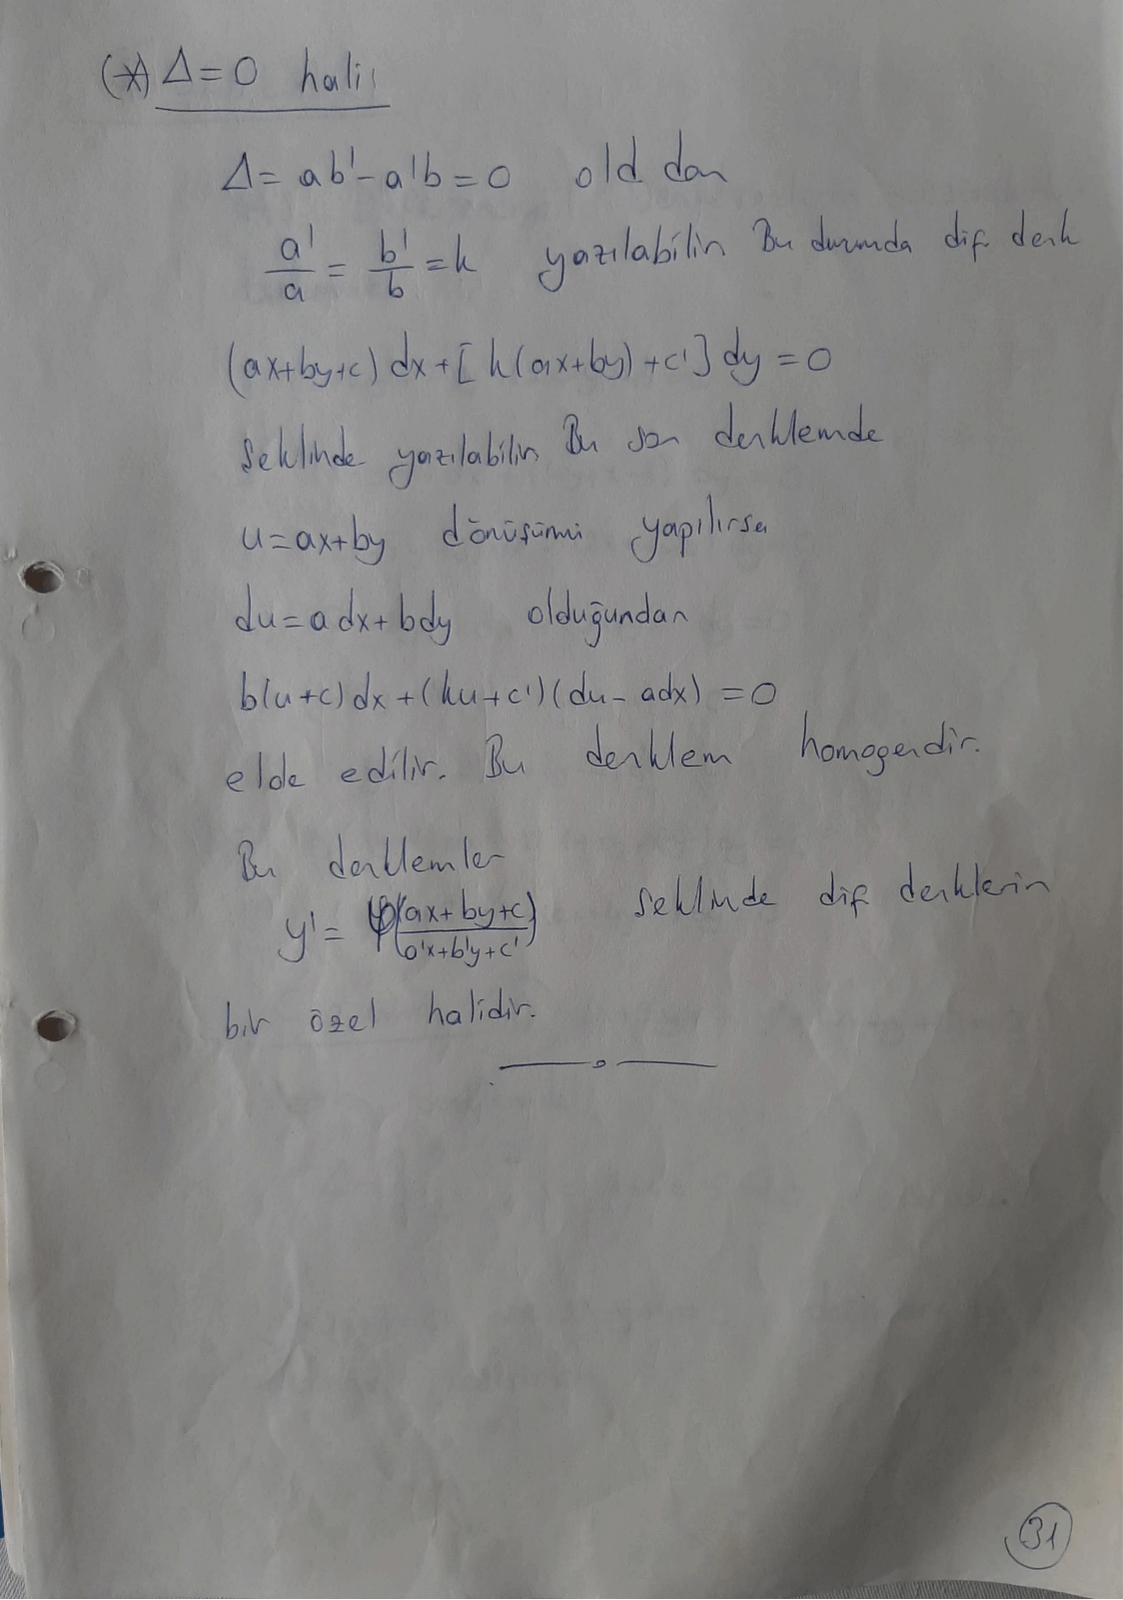 (*) Δ=0 hali
Δ= ab'-a'b=0 old. dan
a'/a = b'/b = k yazılabilir. Bu durumda dif. denk
(ax+by+c) dx+[k(ax+by)+c'] dy=0
şeklinde yazılabilir. Bu son denklemde
u=ax+by dönüşümü yapılırsa
du=adx+bdy olduğundan
b(u+c)dx+(ku+c')(du-adx) =0
elde edilir. Bu denklem homogendir.
Bu denklemler
y'= φ((ax+by+c)/(a'x+b'y+c')) şeklinde dif denklerin
bir özel halidir.
31